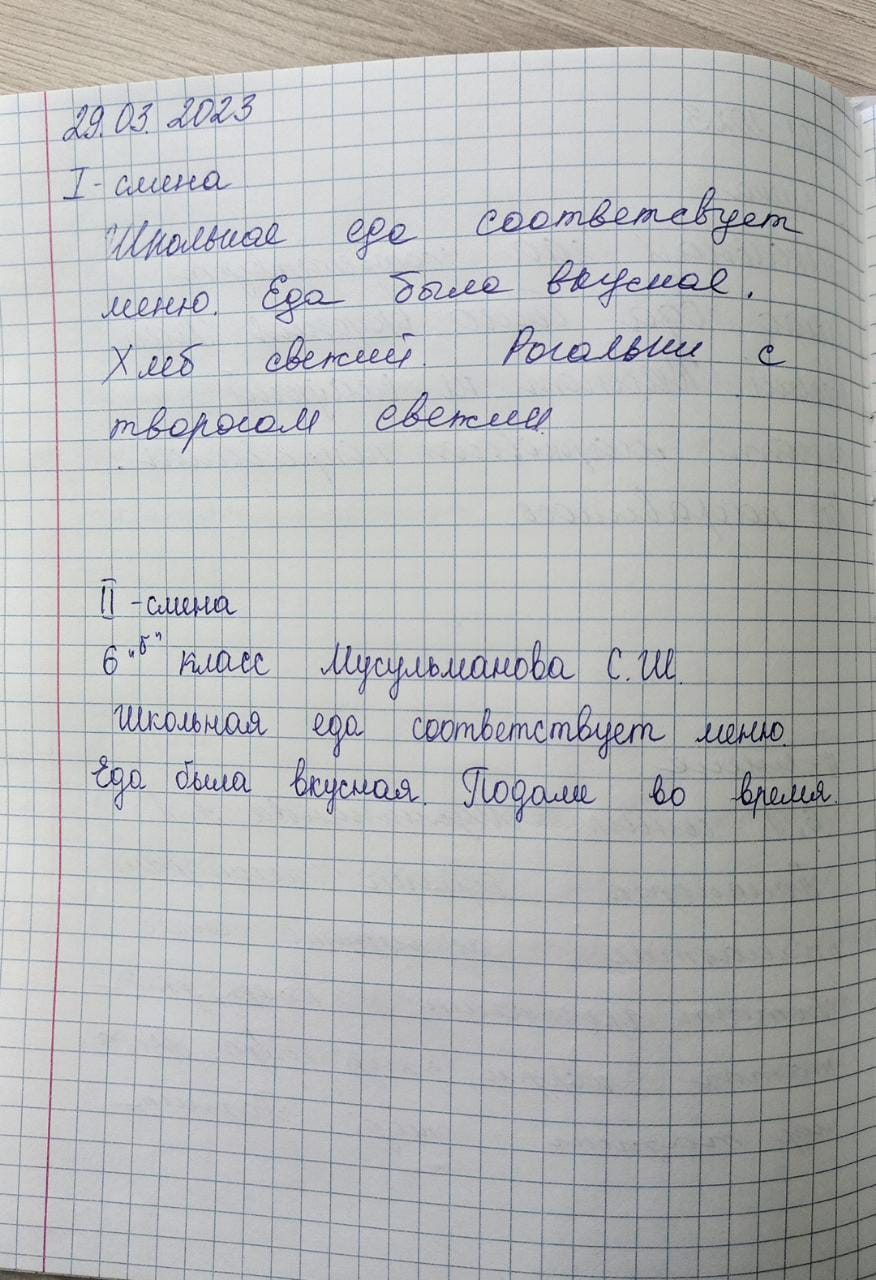 29.03.2023
I - смена
Школьная еда соответсвует
меню. Еда была вкусная.
Хлеб свежий. Рогалики с
творогом свежии.
II - смена
6 "б" класс Мусульманова С.Ш.
Школьная еда соответствует меню.
Еда была вкусная. Подали во время.